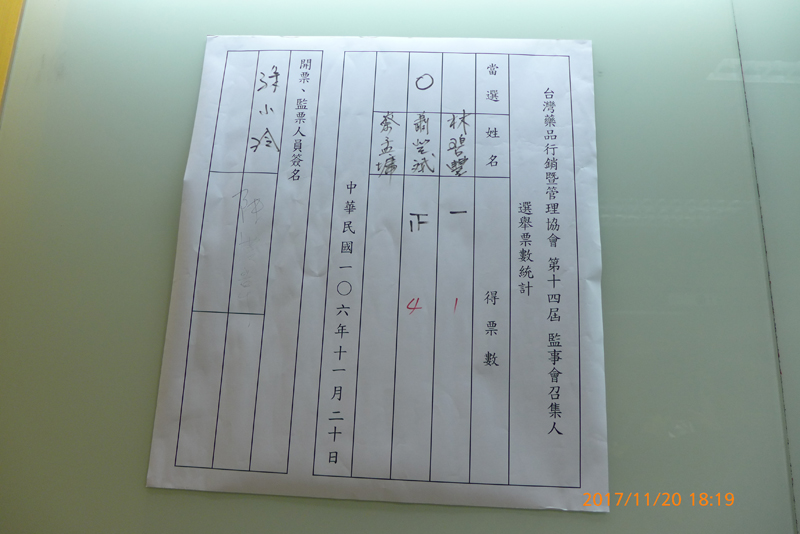 台灣藥品行銷暨管理協會 第十四屆 監事會召集人
選舉票數統計
當選 姓名 得票數
林碧豐 一 1
○ 正 4
蔡孟
中華民國一○六年十一月二十日
開票、監票人員簽名
小冷
2017/11/20 18:19